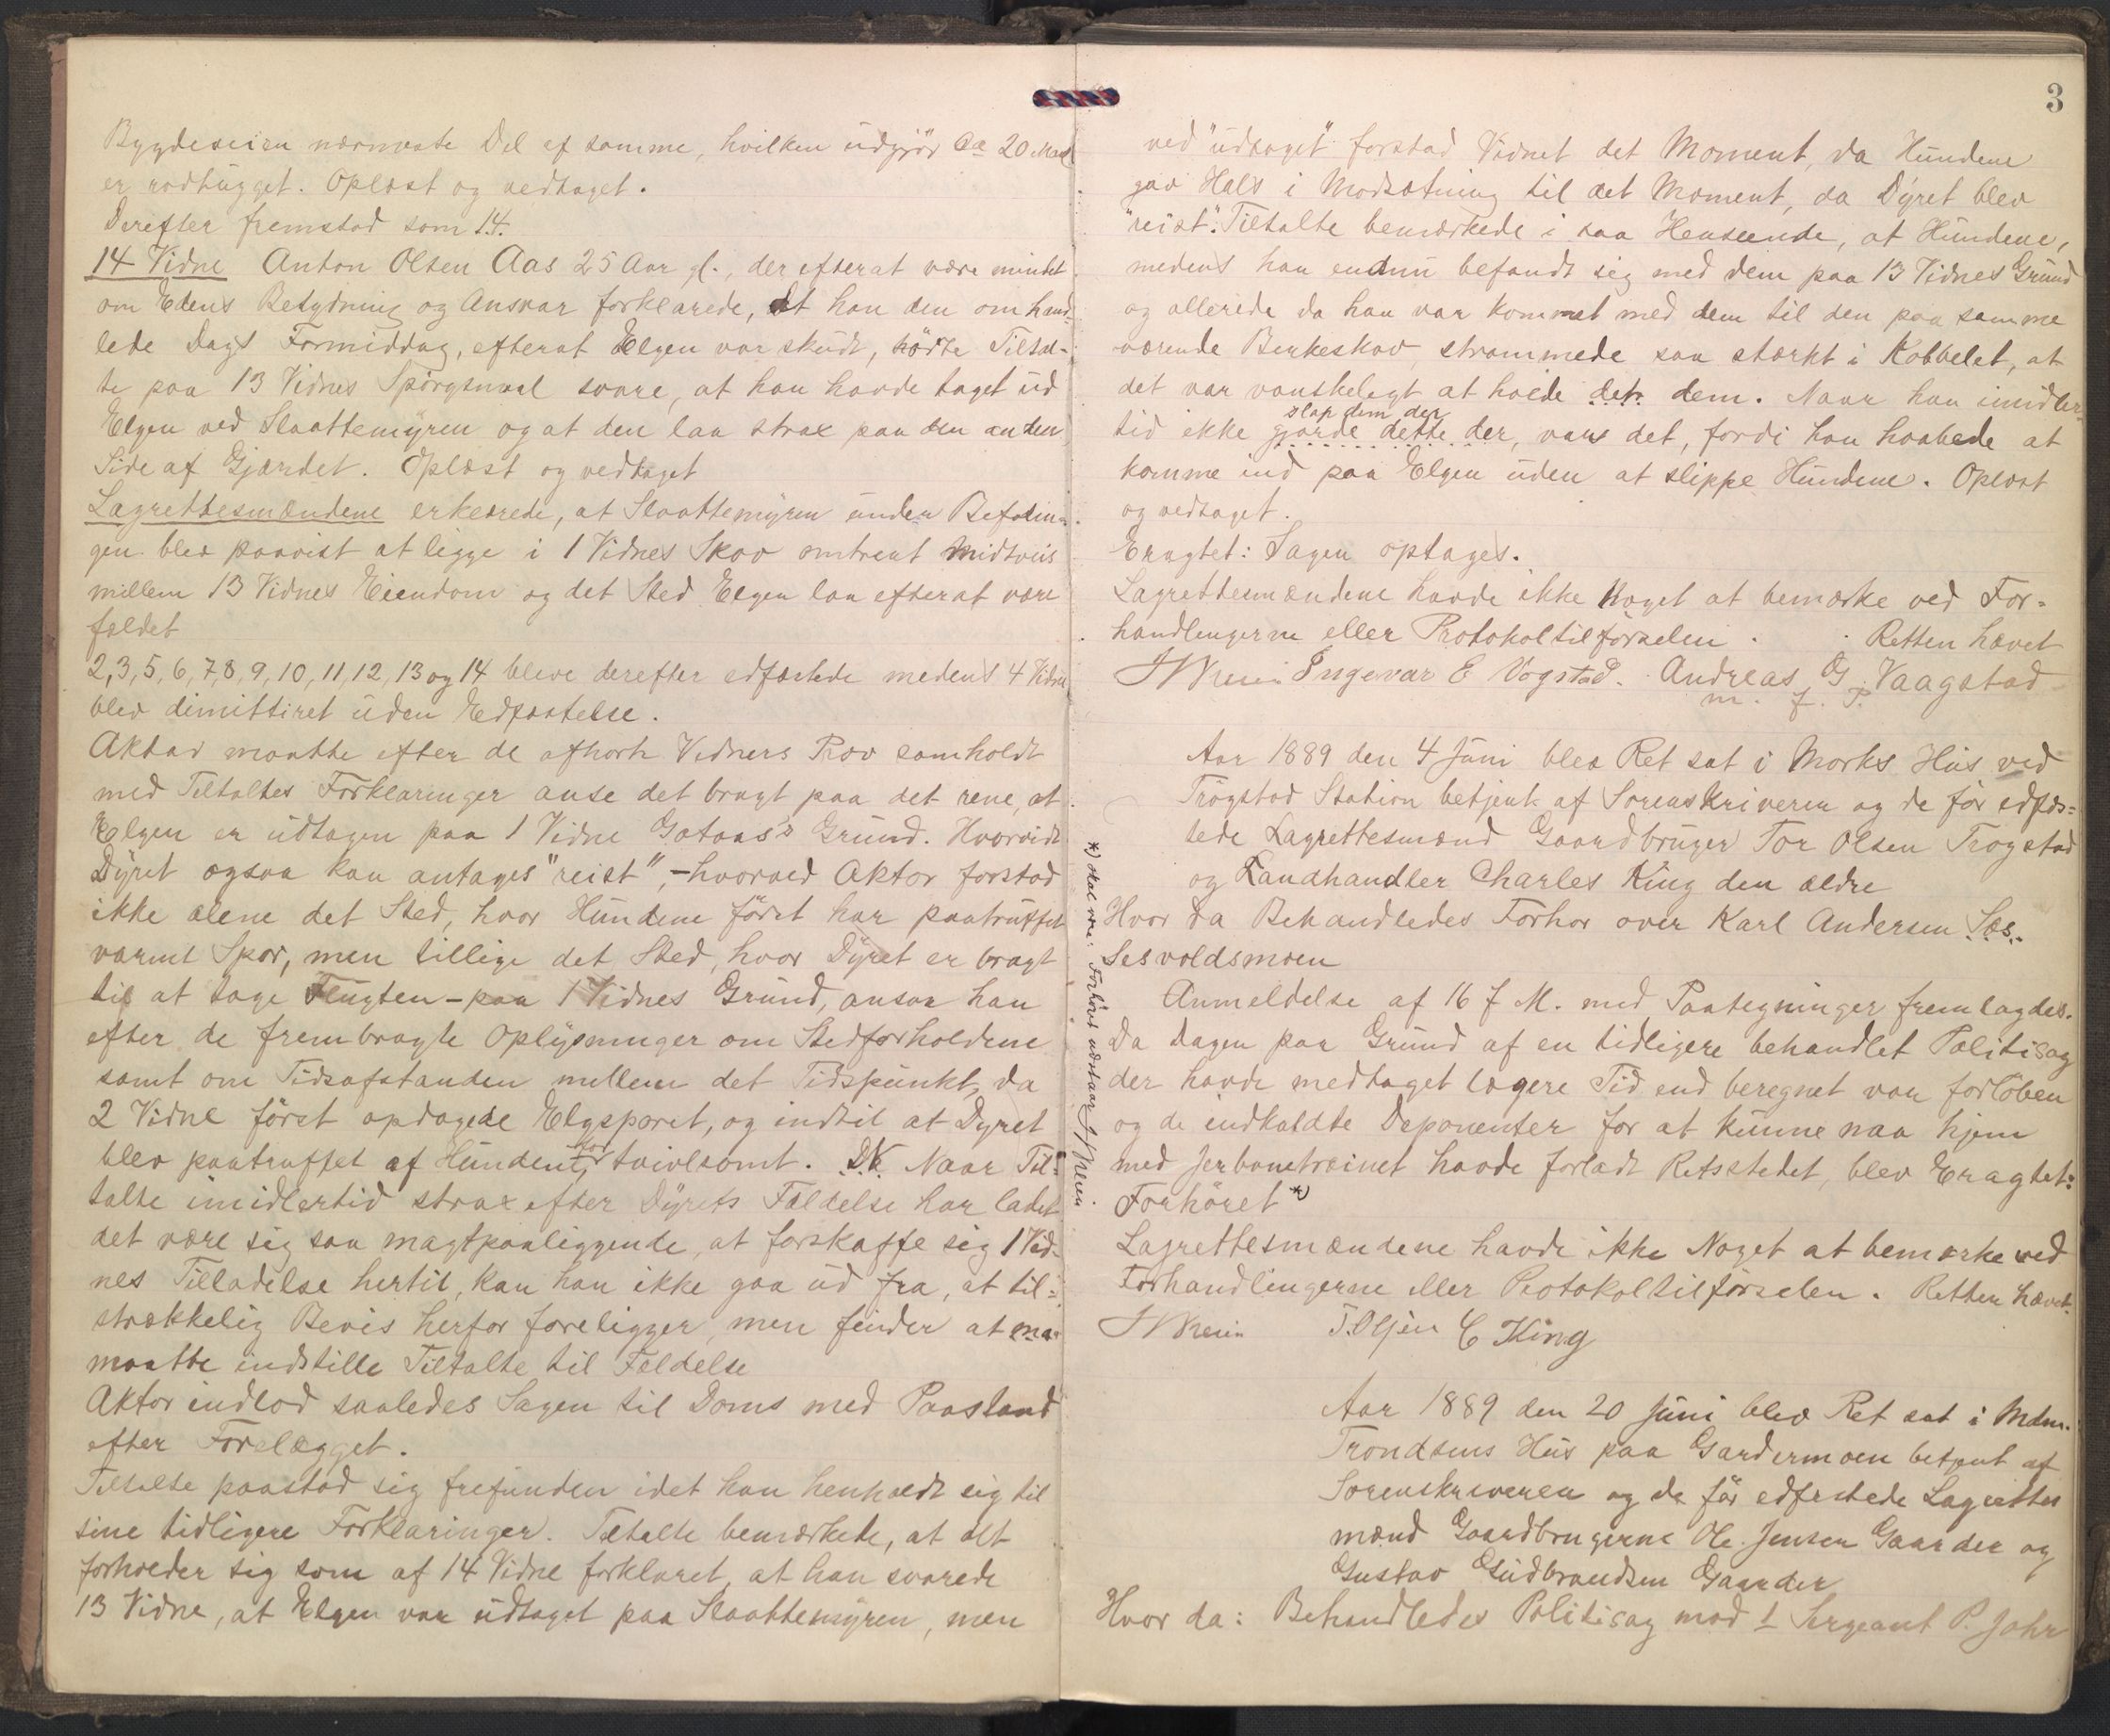 Bygdeveien nærmeste Del af samme, hvilken udgjör Ca 20 Maal
er rodhugget. Oplæst og vedtaget.
Derefter fremstod som 14.
14 Vidne Anton Olsen Aas 25 Aar gl., der efterat være mindet
om Edens Betydning og Ansvar forklarede, at han den omhand-
lede Dags Formiddag, efterat Elgen var skudt, hörte Tiltal-
te paa 13 Vidnes Spörgsmaal svare, at han havde taget ud
Elgen ved Slaattemyren og at den laa strax paa den anden
Side af Gjærdet. Oplæst og vedtaget
Lagrettesmændene erklærede, at Slaattemyren under Befarin-
gen blev paavist at ligge i 1 Vidnes Skov omtrent midtveis
mellem 13 Vidnes Eiendom og det Sted Elgen laa efterat være
fældet
2, 3, 5, 6, 7, 8, 9, 10, 11, 12, 13 og 14 bleve derefter edfæstede medens 4 Vidne
blev dimitteret uden Edfæstelse.
Aktor maatte efter de afhörte Vidners Prov samholdt
med Tiltaltes Forklaringer anse det bragt paa det rene, at
Elgen er udtagen paa 1 Vidne Gotaas's Grund. Hvorvidt
Dyret ogsaa kan antages "reist", - hvorved Aktor forstod
ikke alene det Sted, hvor Hundene först har paatruffet
varmt Spor, men tillige det Sted, hvor Dyret er bragt
til at tage Flugten - paa 1 Vidnes Grund, ansaa han
efter de frembragte Oplysninger om Stedforholdene
samt om Tidsafstanden mellem det Tidspunkt, da
2 Vidne först opdagede Elgsporet, og indtil at Dyret
blev paatruffet af Hundene, for tvivlsomt. D.V. Naar Til-
talte imidlertid strax efter Dyrets Fældelse har ladet
det være sig saa magtpaaliggende, at forskaffe sig 1 Vid-
nes Tilladelse hertil, kan han ikke gaa ud fra, at til-
strækkelig Bevis herfor foreligger, men finder at ma-
maatte indstille Tiltalte til Fældelse
Aktor indlod saaledes Sagen til Doms med Paastand
efter Forelægget.
Tiltalte paastod sig frifunden idet han henholdt sig til
sine tidligere Forklaringer. Tiltalte bemærkede, at det
forholder sig som af 14 Vidne forklaret, at han svarede
13 Vidne, at Elgen var udtaget paa Slaattemyren, men
3
ved "udtaget" forstod Vidnet det Moment, da Hundene
gav Hals i Modsætning til det Moment, da Dyret blev
"reist". Tiltalte bemærkede i saa Henseende, at Hundene,
medens han endnu befandt sig med dem paa 13 Vidnes Grund
og allerede da han var kommet med dem til den paa samme
værende Birkeskov, strammede saa stærkt i Kobbelet, at
det var vanskeligt at holde det dem. Naar han imidler-
slap dem der
tid ikke gjorde dette der, vars det, fordi han haabede at
komme ind paa Elgen uden at slippe Hundene. Oplæst
og vedtaget.
Eragtet: Sagen optages.
Lagrettesmændene havde ikke Noget at bemærke ved For-
handlingerne eller Protokoltilförselen. Retten hævet
Ingevar E Vogstad. Andreas G. Vaagstad
m. f. P.
Aar 1889 den 4 Juni blev Ret sat i Morks Hus ved
Trögstad Station betjent af Sorenskriveren og de för edfæs-
tede Lagrettesmænd Gaardbruger Tor Olsen Trogstad
og Landhandler Charles King den ældre
Hvor da Behandledes Forhor over Karl Andersen Sæs-
sesvoldsmoen
Anmeldelse af 16 f. M. med Paategninger fremlagdes.
Da Dagen paa Grund af en tidligere behandlet Politisag
der havde medtaget lægere Tid end beregnet var forlöben
og de indkaldte Deponenter for at kunne naa hjem
med Jerbanetrainet havde forladt Retsstedet, blev Eragtet:
Forhöret *)
*) skal være: Forhöret udstaar
Lagrettesmændene havde ikke Noget at bemærke ved
Forhandlingerne eller Protokoltilförselen. Retten hævet.
T. Olsen C King
Aar 1889 den 20 Juni blev Ret sat i Mdm.
Trondsens Hus paa Gardermoen betjent af
Sorenskriveren og de för edfæstede Lagrettes
mænd Gaardbrugerne Ole Jensen Gaarder og
Gustav Gudbrandsen Gaarder
Hvor da: Behandledes Politisag mod 1 Sergeant P. Johr